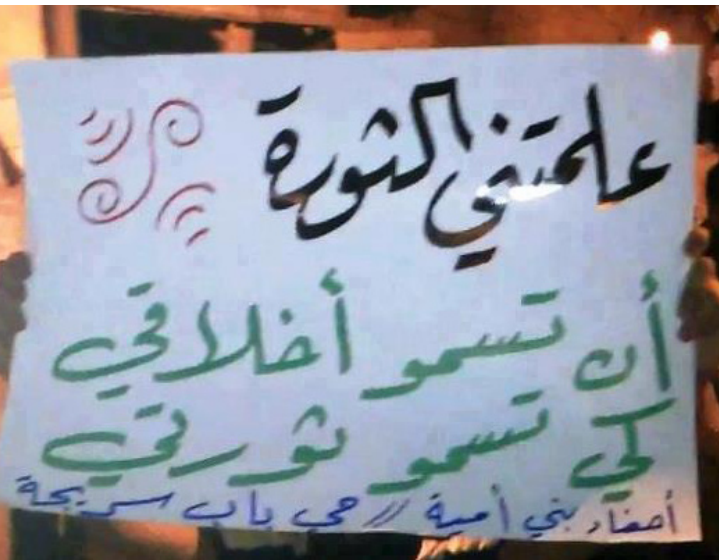 علمتني الثورة
أن تسمو أخلاقي
كي تسمو ثورتي
أحفاد بني أمية // حي باب سريجة